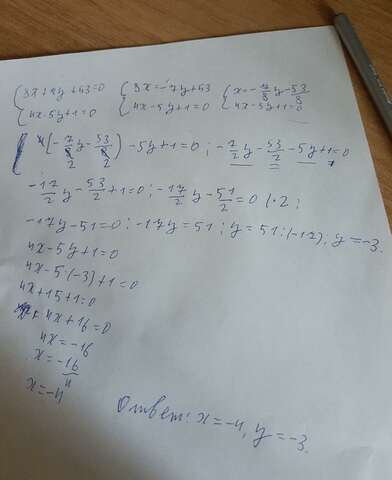 {8x+7y+53=0 {8x=-7y+53 {x=-7/8y-53/8
{4x-5y+1=0 {4x-5y+1=0 {4x-5y+1=0
4(-7/8y-53/8)-5y+1=0; -7/2y-53/2-5y+1=0
-17/2y-53/2+1=0; -17/2y-51/2=0 |·2;
-17y-51=0; -17y=51; y=51:(-17); y=-3.
4x-5y+1=0
4x-5·(-3)+1=0
4x+15+1=0
4x+16=0
4x=-16
x=-16/4
x=-4
Ответ: x=-4, y=-3.